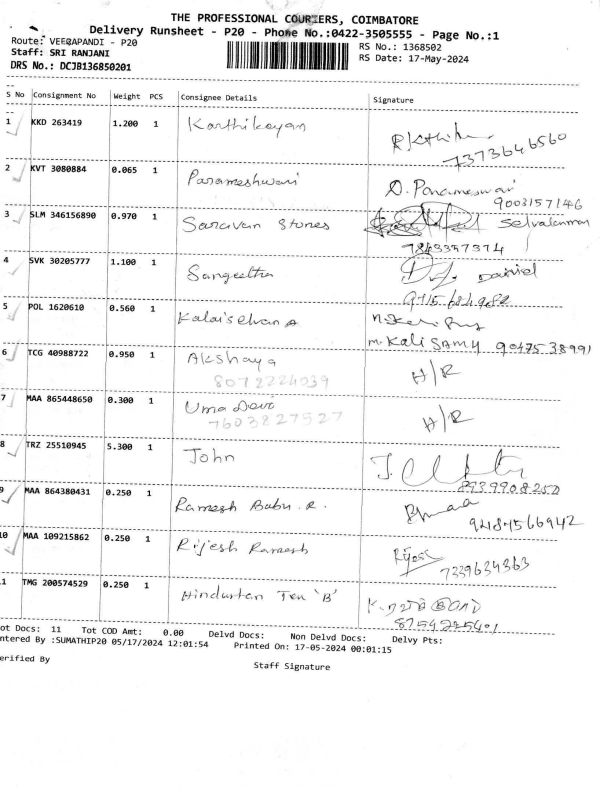 THE PROFESSIONAL COURIERS, COIMBATORE
Delivery Runsheet - P20 - Phone No.:0422-3505555 - Page No.:1
Route: VEERAPANDI - P20
RS No.: 1368502
Staff: SRI RANJANI
RS Date: 17-May-2024
DRS No.: DCJB136850201
S No Consignment No Weight PCS Consignee Details Signature
1 KKD 263419 1.200 1 Karthikeyan
7373646560
2 KVT 3080884 0.065 1 Parameshwari D. Parameswari
9003157146
3 SLM 346156890 0.970 1 Saravan Stores
7843357374
4 SVK 30205777 1.100 1 Sangeetha Daniel
5 POL 1620610 0.560 1 Kalaiselvan A
M. Kali SAMY 9047538991
6 TCG 40988722 0.950 1 Akshaya H/R
8072224039
7 MAA 865448650 0.300 1 Uma Devi H/R
7603827527
8 TRZ 25510945 5.300 1 John
8939908250
9 MAA 864380431 0.250 1 Ramesh Babu. R.
9487566942
10 MAA 109215862 0.250 1 Rijesh Ramesh
7339634363
11 TMG 200574529 0.250 1 Hindustan Tex 'B'
8754275401
ot Docs: 11 Tot COD Amt: 0.00 Delvd Docs: Non Delvd Docs: Delvy Pts:
ntered By :SUMATHIP20 05/17/2024 12:01:54 Printed On: 17-05-2024 00:01:15
erified By
Staff Signature